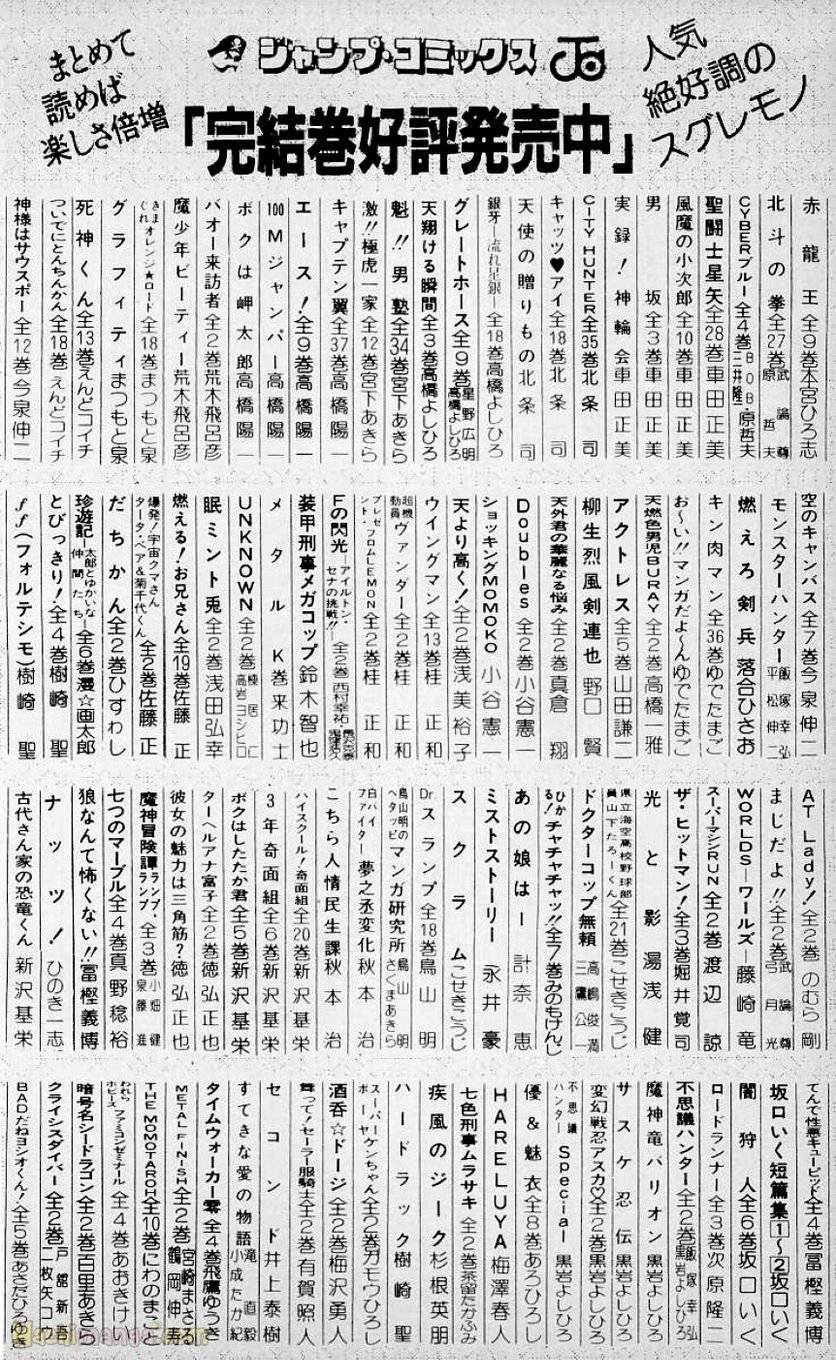 まとめて
読めば
楽しさ倍増
ジャンプ・コミックス
人気
絶好調の
スグレモノ
「完結巻好評発売中」
赤龍王全9巻本宮ひろ志
北斗の拳全27巻武論尊 原哲夫
CYBERブルー全4巻BOB 三井隆一 原哲夫
聖闘士星矢全28巻車田正美
風魔の小次郎全10巻車田正美
男坂全3巻車田正美
実録!神輪会車田正美
CITY HUNTER全35巻北条司
キャッツ♥アイ全18巻北条司
天使の贈りもの北条司
銀牙―流れ星銀―全18巻高橋よしひろ
グレートホース全9巻星野広明 高橋よしひろ
天翔ける瞬間全3巻高橋よしひろ
魁!!男塾全34巻宮下あきら
激!!極虎一家全12巻宮下あきら
キャプテン翼全37巻高橋陽一
エース!全9巻高橋陽一
100Mジャンパー高橋陽一
ボクは岬太郎高橋陽一
バオー来訪者全2巻荒木飛呂彦
魔少年ビーティー荒木飛呂彦
きまぐれオレンジ★ロード全18巻まつもと泉
グラフィティまつもと泉
死神くん全13巻えんどコイチ
ついでにとんちんかん全18巻えんどコイチ
神様はサウスポー全12巻今泉伸二
空のキャンバス全7巻今泉伸二
モンスターハンター飯塚幸弘 平松伸二
燃えろ剣兵落合ひさお
キン肉マン全36巻ゆでたまご
お〜い!!マンガだよくんゆでたまご
天燃色男児BURAY全2巻高橋一雅
アクトレス全5巻山田謙二
柳生烈風剣連也野口賢
天外君の華麗なる悩み全2巻真倉翔
Doubles全2巻小谷憲一
ショッキングMOMOKO小谷憲一
天より高く!全2巻浅美裕子
ウイングマン全13巻桂正和
超機動員ヴァンダー全2巻桂正和
プレゼント・フロムLEMON全2巻桂正和
Fの閃光―アイルトン・セナの挑戦!!―全2巻西村幸祐
装甲刑事メガコップ鈴木智也
メタルK巻来功士
UNKNOWN全2巻棟居仁 高岩ヨシヒロ
眠兎全2巻浅田弘幸
燃える!お兄さん全19巻佐藤正
爆発!宇宙クマさん タータ・ベア&菊千代くん全2巻佐藤正
だちかん全2巻ひすわし
珍遊記―太郎とゆかいな仲間たち―全6巻漫☆画太郎
とびっきり!全4巻樹崎聖
ff(フォルテシモ)樹崎聖
AT Lady!全2巻のむら剛
まじだよ!!全2巻武論尊 弓月光
WORLDS―ワールズ―藤崎竜
スーパーマシンRUN全2巻渡辺諒
ザ・ヒットマン!全3巻堀井覚司
光と影湯浅健
県立海空高校野球部員山下たろーくん全21巻こせきこうじ
ドクターコップ無頼高嶋俊満 三鷹公一
ひかる!チャチャチャッ!!全7巻みのもけんじ
あの娘は―計奈恵
ミストストーリー永井豪
スクラムこせきこうじ
Drスランプ全18巻鳥山明
鳥山明のヘタッピマンガ研究所鳥山明 さくまあきら
白バイファイター夢之丞変化秋本治
こちら人情民生課秋本治
ハイスクール!奇面組全20巻新沢基栄
3年奇面組全6巻新沢基栄
ボクはしたたか君全5巻新沢基栄
ターヘルアナ富子全2巻徳弘正也
彼女の魅力は三角筋?徳弘正也
魔神冒険譚ランプ・ランプ全3巻小畑健 泉藤進
七つのマーブル全4巻真野稔裕
狼なんて怖くない!!冨樫義博
ナッツ!ひのき一志
古代さん家の恐竜くん新沢基栄
てんで性悪キューピッド全4巻冨樫義博
坂口いく短篇集1〜2坂口いく
闇狩人全6巻坂口いく
ロードランナー全3巻次原隆二
不思議ハンター全2巻飯塚幸弘 黒岩よしひろ
魔神竜バリオン黒岩よしひろ
サスケ忍伝黒岩よしひろ
変幻戦忍アスカ♡全2巻黒岩よしひろ
不思議ハンターSpecial黒岩よしひろ
優&魅衣全8巻あろひろし
HARELUYA梅澤春人
七色刑事ムラサキ全2巻茶留たかふみ
疾風のジーク杉根英朋
ハードラック樹崎聖
スーパーヤケンちゃん全2巻ガモウひろし
酒呑☆ドージ全2巻梅沢勇人
舞って!セーラー服騎士全2巻有賀照人
セコンド井上泰樹
すてきな愛の物語滝直毅 小成たか紀
タイムウォーカー零全4巻飛鷹ゆうき
METAL FINISH全2巻宮崎まさる 鶴岡伸寿
THE MOMOTAROH全10巻にわのまこと
われらホビーズファミコンゼミナール全4巻あおきけい
暗号名シードラゴン全2巻百里あきら
クライシスダイバー全2巻戸舘新吾 二枚矢コウ
BADだねヨシオくん!全5巻あさだひろゆき